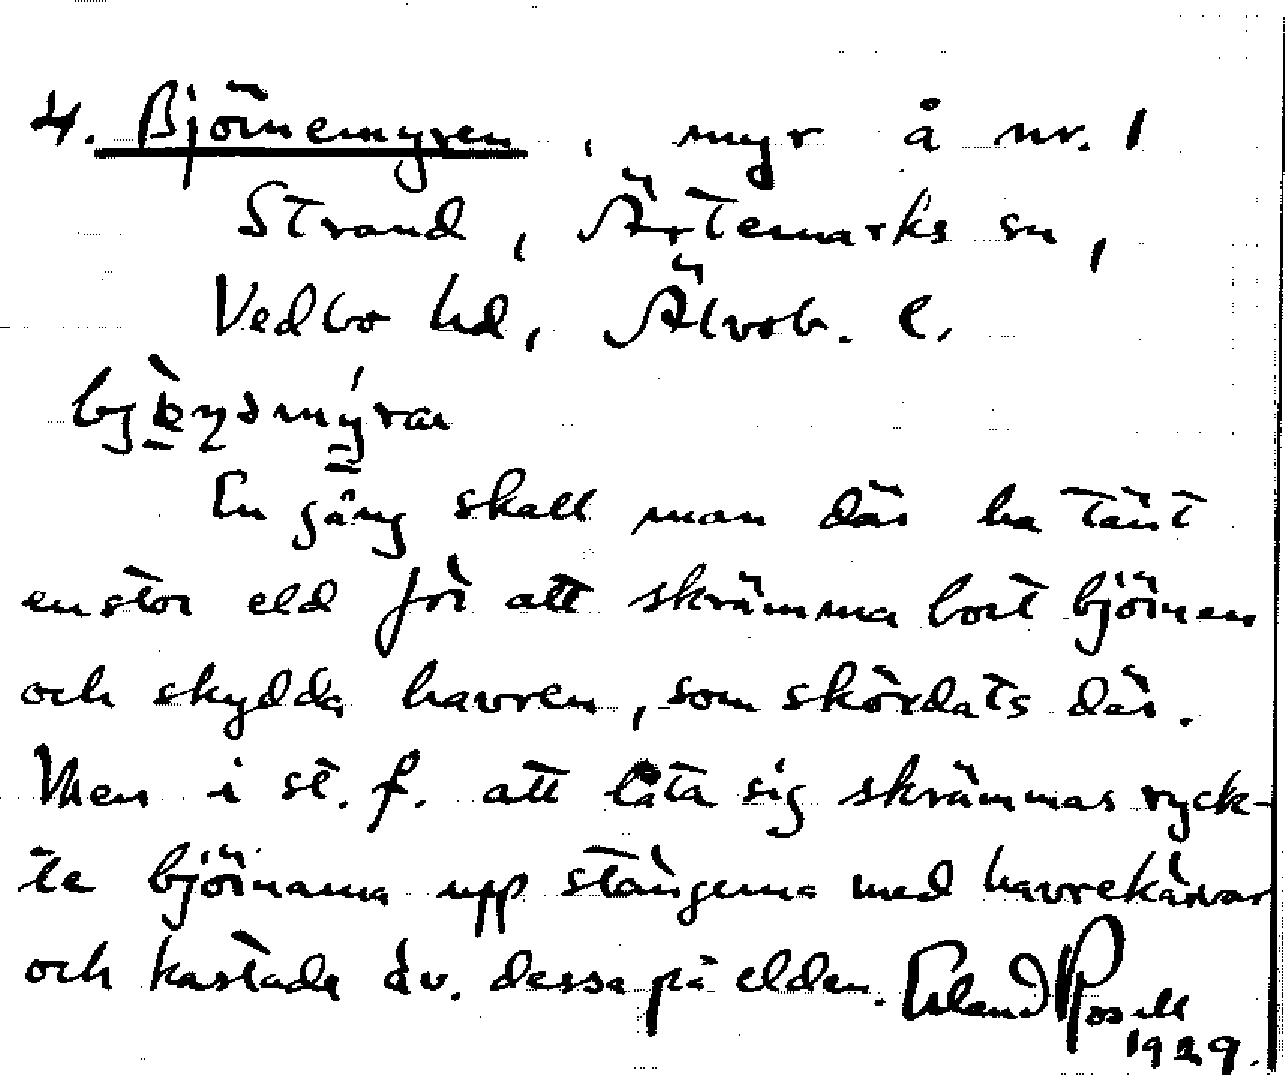 4. Björnemyren, myr å nr. 1
Strand, Ärtemarks sn,
Vedbo hd, Älvsb. l.
En gång skall man där ha tänt
en stor eld för att skrämma bort björnen
och skydda havren, som skördats där.
Men i st. f. att låta sig skrämmas ryck-
te björnarna upp stängerna med havrekärvar
och kastade äv. dessa på elden. Erland Rosell
1929.